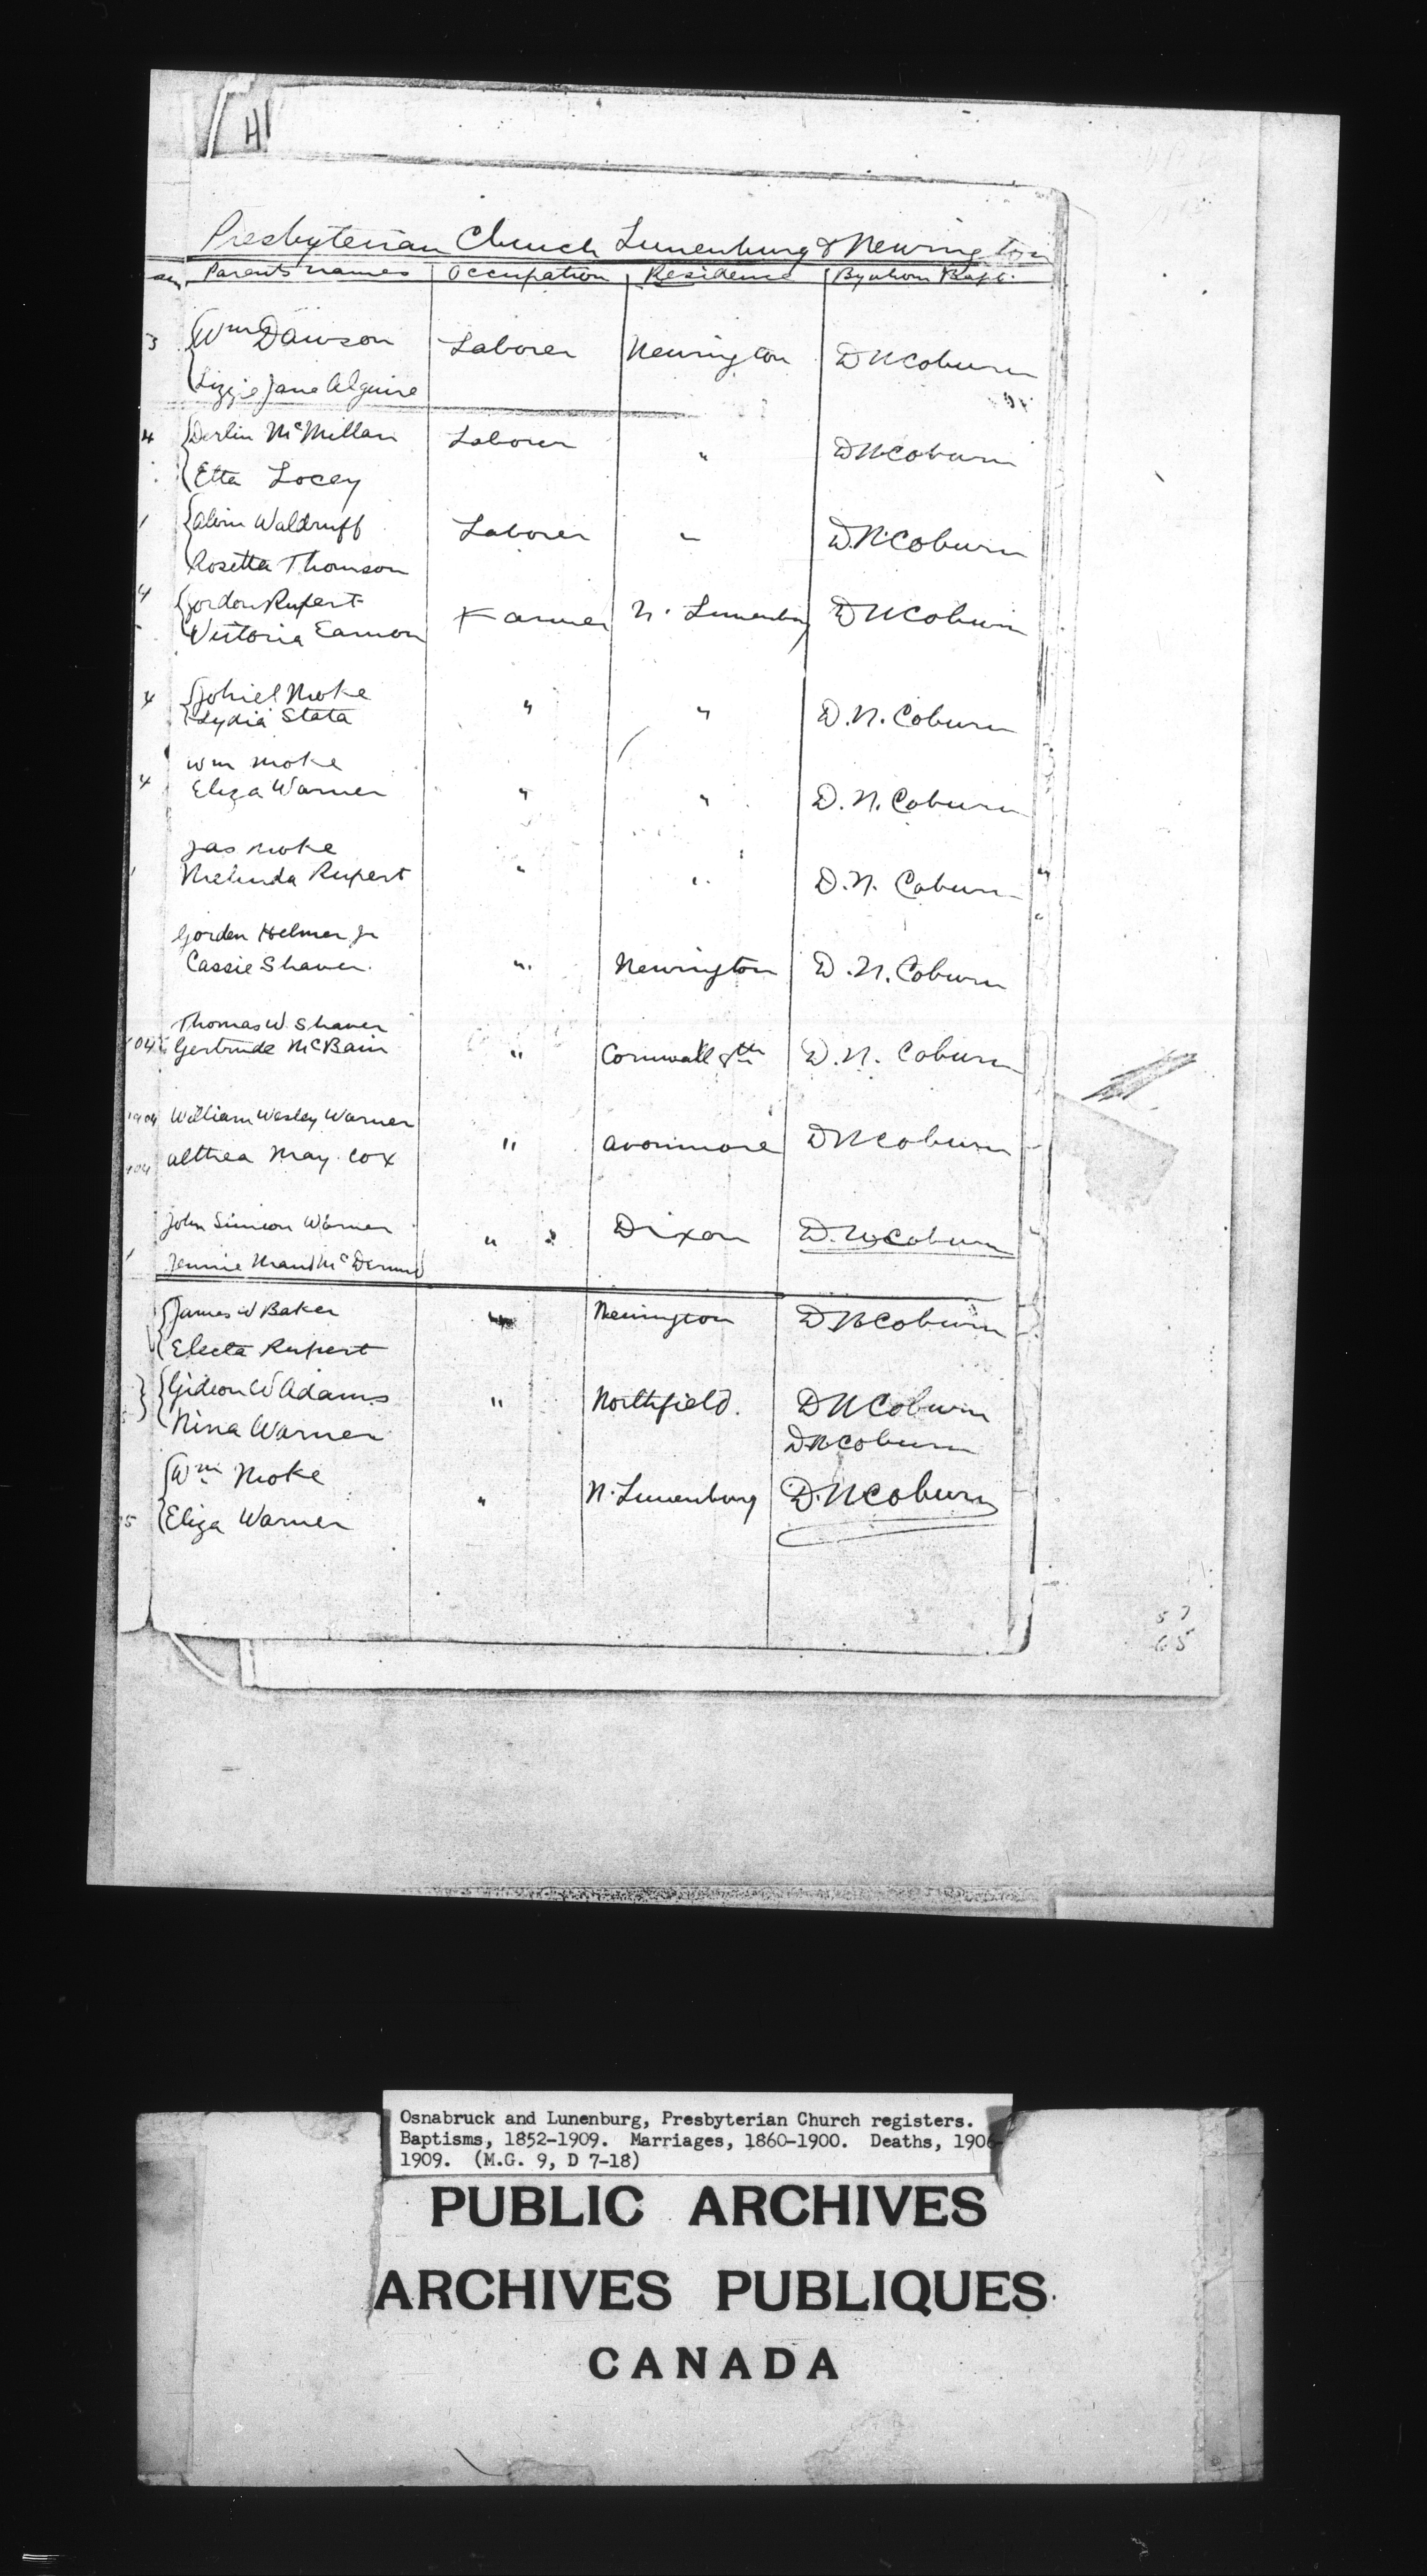 H
Presbyterian Church Lunenburg & Newington
Parents names Occupation Residence By whom Bapt.
3 Wm Dawson Laborer Newington D N Coburn
Lizzie Jane Alguire
4 McMillan Laborer " D N Coburn
Etta Locey
Alvin Waldruff Laborer " D. N. Coburn
Rosetta Thomson
4 Gordon Rupert Farmer N. Lunenburg D N Coburn
Victoria Eamon
4 Moke " " D. N. Coburn
Lydia Stata
Wm Moke
4 Eliza Warner " " D. N. Coburn
Jas Moke
Melinda Rupert " " D. N. Coburn
Gorden Helmer Jr
Cassie Shaver. " Newington D. N. Coburn
Thomas W. Shaver
04 Gertrude McBain " Cornwall 8th D. N. Coburn
1904 William Wesley Warner
Althea May Cox " Avonmore D N Coburn
John Simeon Warner " Dixon D. N. Coburn
Jennie Maud McDermid
James W Baker " Newington D N Coburn
Electa Rupert
Gideon W Adams " Northfield. D N Coburn
Nina Warner D N Coburn
Wm Moke " N. Lunenburg D. N Coburn
5 Eliza Warner
57
65
Osnabruck and Lunenburg, Presbyterian Church registers.
Baptisms, 1852-1909. Marriages, 1860-1900. Deaths, 1906-
1909. (M.G. 9, D 7-18)
PUBLIC ARCHIVES
ARCHIVES PUBLIQUES
CANADA